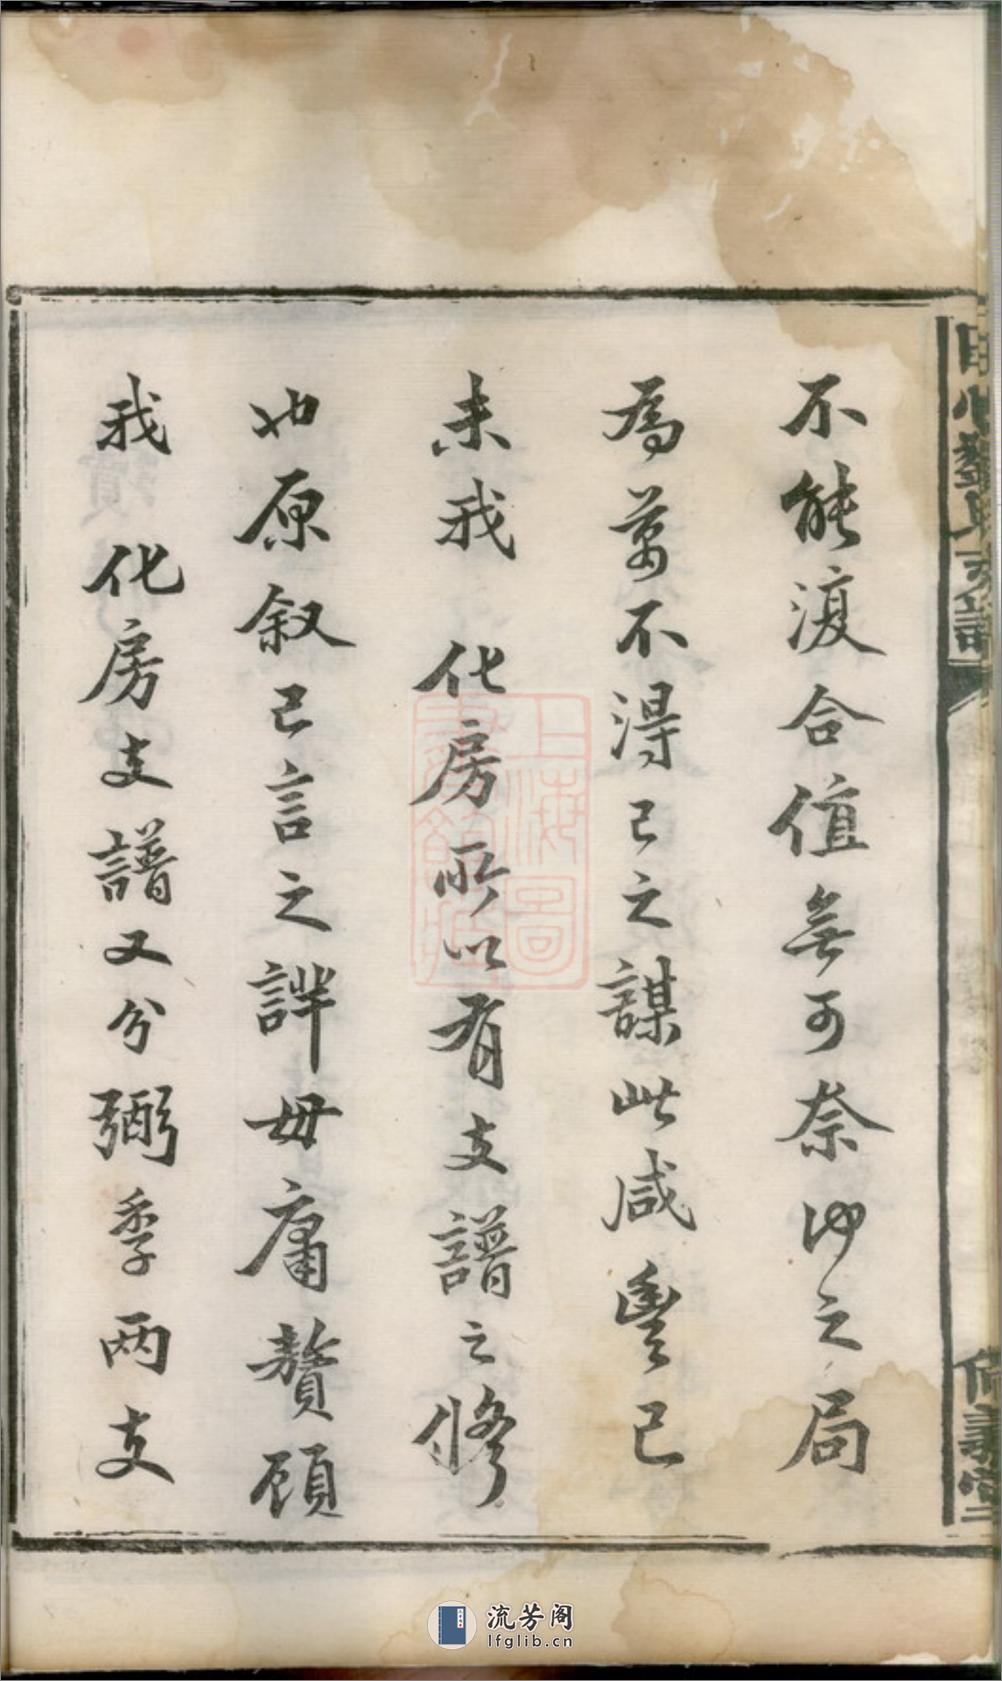 不能復合值無可奈何之局
為萬不得已之謀此咸豐己
未我 化房所以有支譜之修
也原叙已言之詳毋庸贅顧
我 化房支譜又分弼季兩支
上海圖
書館藏
流芳阁
lfglib.cn